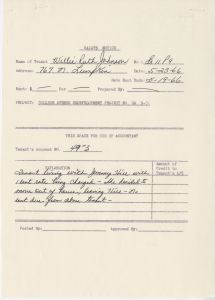 VACATE NOTICE
Name of Tenant Willie Ruth Johnson No.
Address: 767 N. Date 5-23-66
Date Rent Ends: 5-19-66
Rent: $ For Prepared By:
PROJECT: COLLEGE AVENUE REDEVELOPMENT PROJECT NO.
THIS SPACE FOR USE OF ACCOUNTANT
Tenant's Account No. 49-3
EXPLANATION
Amount of Credit to Tenant's A/C
Tenant living with Johnny Hill with
rent being charged - She decided to
move out of house, leaving Hill - No
rent due from above tenant -
Posted By: Approved By: